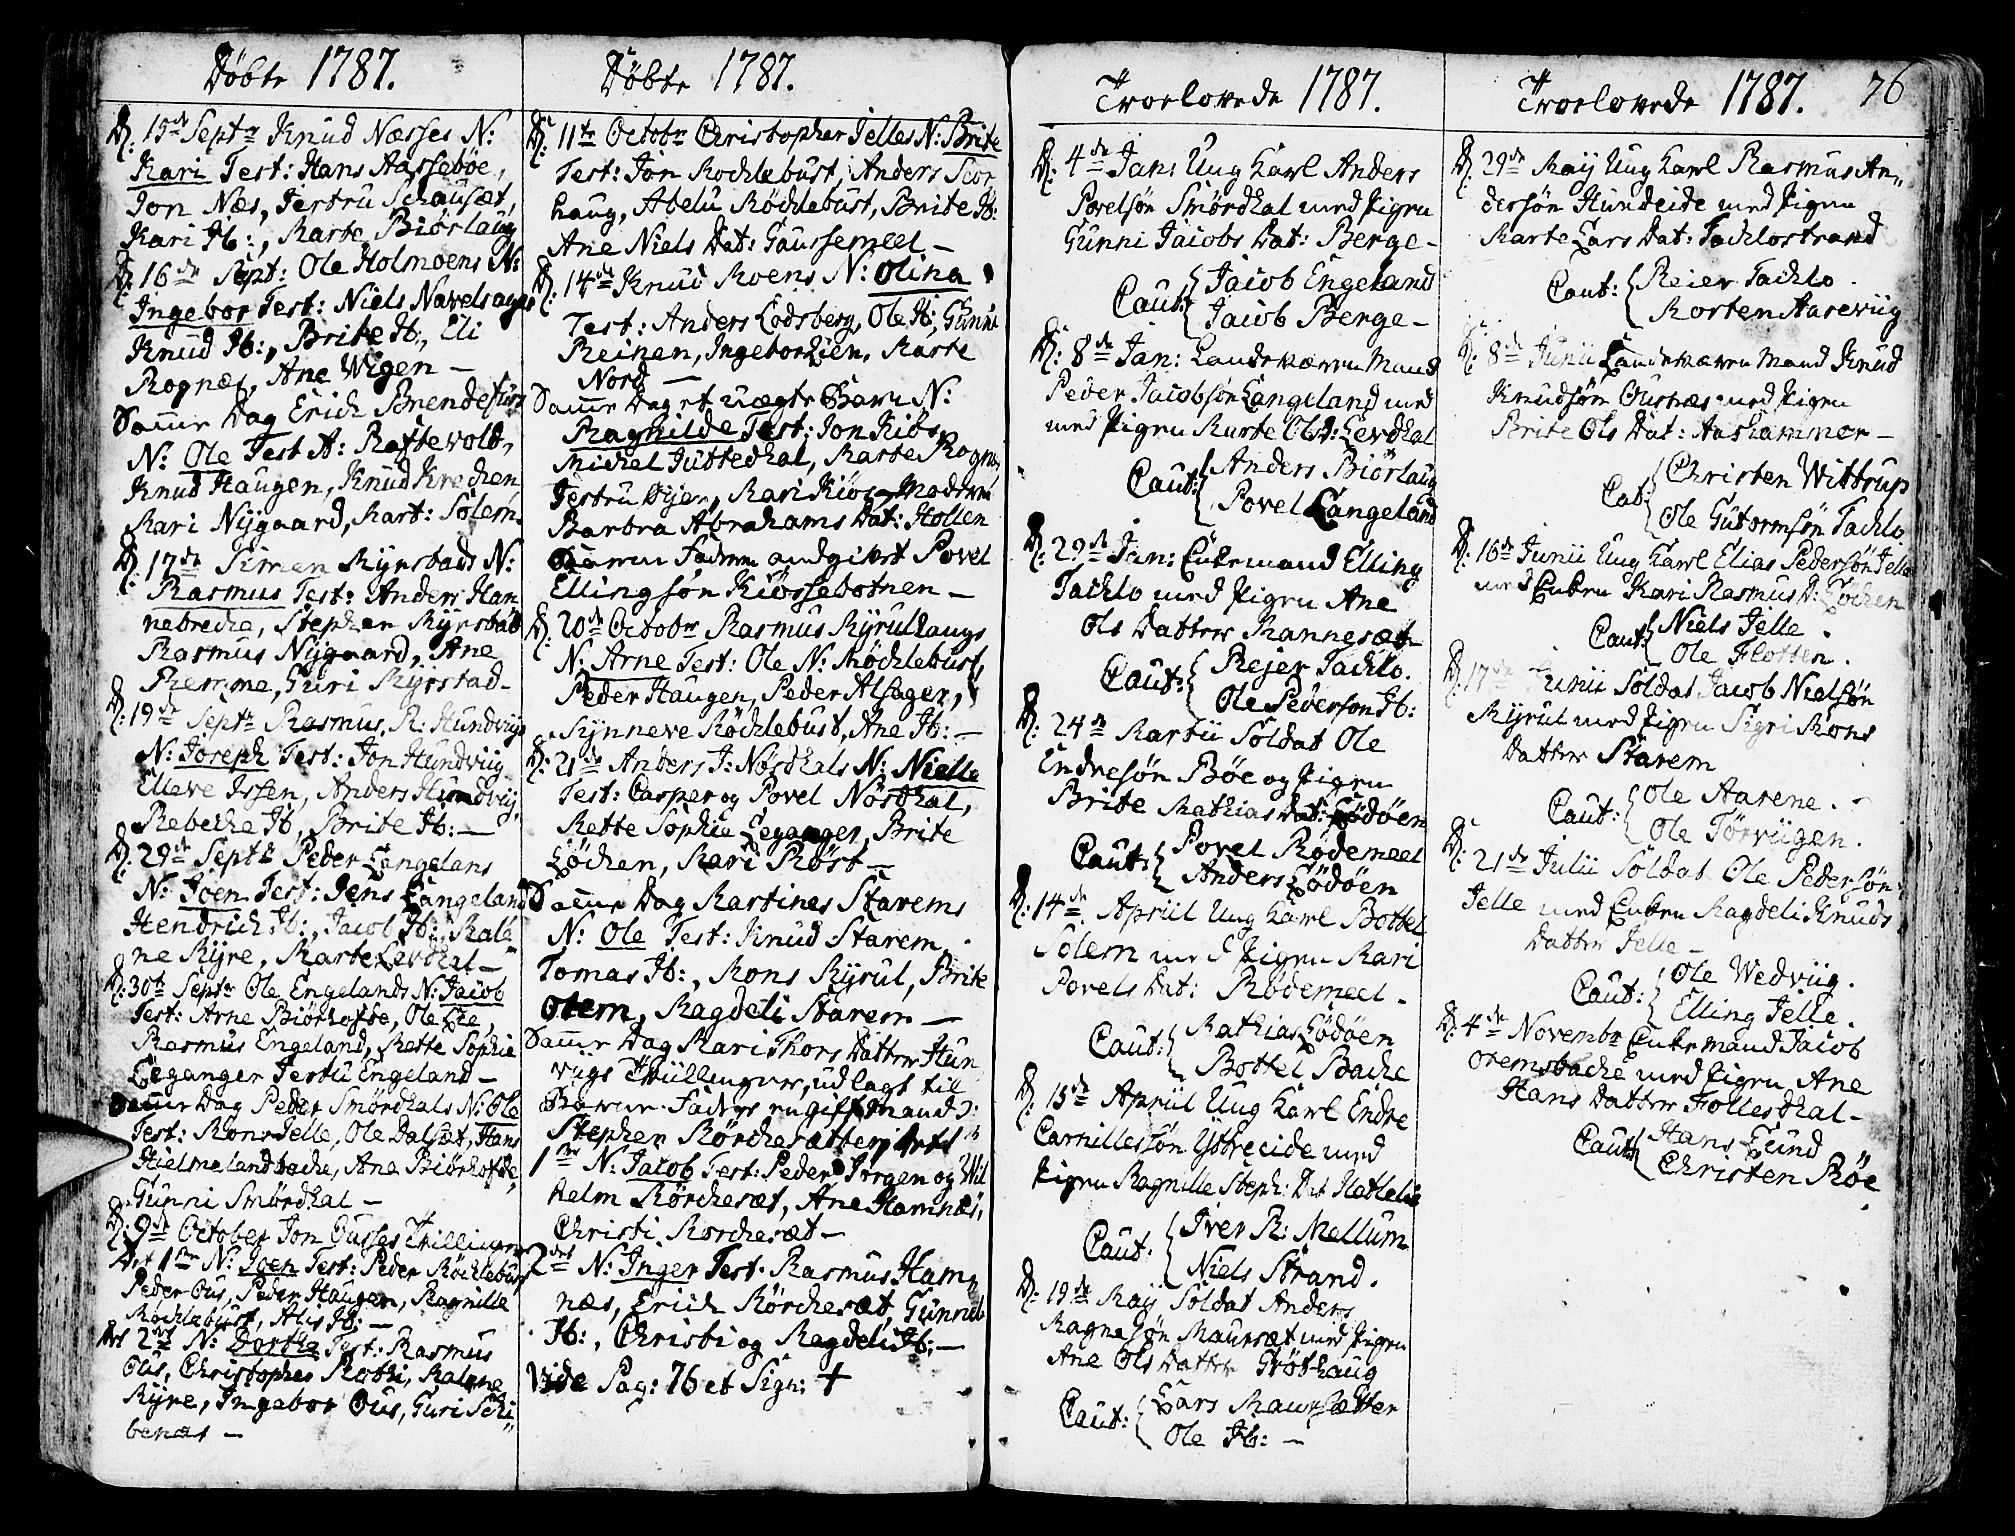 Døbte 1787.
D: 15de Septr Knud Næsses N:
Kari Test: Hans Aassebøe,
Jon Næs, Jertru Schausæt,
Kari Ib:, Marte Biørlaug
D: 16de Sept: Ole Holmoens N:
Ingebor Test: Niels Navelsager
Knud Ib:, Brite Ib:, Eli
Rognæs, Ane Wigen —
Samme Dag Erich Brendefurs
N: Ole Test A: Raftevold,
Knud Haugen, Knud Krechen
Mari Nijgaard, Mart: Solem
D: 17de Simen Myrstads N:
Rasmus Test: Anders Han
nebrecke, Stephen Myrstad
Rasmus Nijgaard, Ane
Remme, Guri Myrstad —
D: 19de Septr Rasmus R: Hundviigs
N: Joseph Test: Jon Hundviig
Elleve Issen, Anders Hundviig,
Rebecke Ib, Brite Ib: —
D: 29de Septr Peder Langelans
N: Joen Test: Jens Langeland
Hendrich Ib:, Jacob Ib:, Male
ne Myre, Marte Levdhal —
D: 30te Septr Ole Engelands N: Jacob
Test: Arne Biørhofde, Ole Lie,
Rasmus Engeland, Mette Sophie
Leganger Jertru Engeland —
Samme Dag Peder Smørdhals N: Ole
Test: Mons Jelle, Ole Dalsæt, Hans
Hielmelandbacke, Ane Biørhofde,
Gunni Smørdhal —
D: 9de October Jon Ousses Tvillinger
Det 1ste N: Joen Test: Peder Røchlebust
Peder Ous, Peder Haugen, Magnille
Rochlebust, Alis Ib: —
Det 2det N: Dorthe Test: Rasmus
Ous, Christopher Mothi, Malene
Myre, Ingebor Ous, Guri Schi
benæs —
Døbte 1787.
D: 11te Octobr Christopher Jelles N: Brite
Test: Jon Rochlebust, Anders Stor
haug, Abelu Røchlebust, Brite Ib:
Ane Niels Dat: Gaussemeel —
D: 14de Knud Moens N: Olina
Test: Anders Lodsberg, Ole Ib:, Gunni
Meinen, Ingebor Lien, Marte
Nord —
Samme Dag et uægte Barn N:
Ragnilde Test: Jon Kiøs,
Michel Juttedhal, Marte Rogn,
Jertru Øijen, Mari Kiøs — Moderen
Barbra Abrahams Dat: Hollen
Barne Faderen andgivet Povel
Ellingsøn Kiøssebotnen —
D: 20de Octobr Rasmus Myrulhaugs
N: Arne Test: Ole N: Røchlebust,
Peder Haugen, Peder Alsager,
Synneve Røchlebust, Ane Ib: —
D: 21de Anders J: Nosdhals N: Nielle
Test: Casper og Povel Nosdhal,
Mette Sophie Leganger, Brite
Løchen, Mari Røst —
Samme Dag Martines Starems
N: Ole Test: Knud Starem
Tomas Ib:, Mons Myrul, Brite
Otem, Magdeli Starem —
Samme Dag Mari Thors Datter Hun
viigs Tvillinger, udlagt til
Barne-Fader en gift mand
Stephen Mørchesætter,
1ste N: Jacob Test: Peder Jørgen og Wil
helm Mørchesæt, Ane Hamnæs,
Christi Morchesæt —
2det N: Inger Test. Rasmus Ham
næs, Erich Mørchesæt, Gunnele
Ib:, Christi og Magdeli Ib: —
Vide Pag: 76 et Sign: +
Troelovede 1787.
D: 4de Jan: Ung Karl Anders
Povelsøn Smørdhal med Pigen
Gunni Jacobs Dat: Berge —
Caut: Jacob Engeland
Jacob Berge —
D: 8de Jan: Landeværn Mand
Peder Jacobsøn Langeland med
med Pigen Marte Ols D: Levdhal
Caut: Anders Biørlaug
Povel Langeland
D: 29de Jan: Enkemand Elling
Tachlo med Pigen Ane
Ols Datter Mannesæt
Caut: Rejer Tachlo.
Ole Pederson Ib:
D: 24de Martii Soldat Ole
Endresøn Bøe og Pigen
Brite Mathias Dat: Lødøen
Caut: Povel Rødemeel
Anders Lødøen
D: 14de Apriil Ung Karl Bottel
Solem med Pigen Mari
Povels Dat: Rødemeel —
Caut: Mathias Lødøen
Bottel Backe
D: 15de Apriil Ung Karl Endre
Carnillessøn Ystreeide med
Pigen Magnille Steph: Dat Hatlelie
Caut: Iver R: Mellum
Niels Strand.
D: 19de Maij Soldat Anders
Magnesøn Maursæt med Pigen
Ane Ols Datter Grøthaug
Caut: Lars Maursætter
Ole Ib: —
Troelovede 1787. 76
D: 29de Maij Ung Karl Rasmus An„
dersøn Hundeide med Pigen
Marte Lars Dat: Tachlostrand
Caut: Reier Tachlo.
Morten Aareviig
D: 8de Junii Landeværn Mand Knud
Knudsøn Ousnæs med Pigen
Brite Ols Dat: Aashammer —
Cat: Christen Wittrup
Ole Gutormsøn Tachlo
D: 16de Junii Ung Karl Elias Pedersøn Jelle
med Enken Kari Rasmus D: Løchen
Caut: Niels Jelle.
Ole Flotten.
D: 17de Junii Soldat Jacob Nielsøn
Myrul med Pigen Sigri Mons
Datter Starem
Caut: Ole Aarene.
Ole Torviigen.
D: 21de Julii Soldat Ole Pedersøn
Jelle med Enken Magdeli Knuds
Datter Jelle —
Caut: Ole Wedviig.
Elling Jelle.
D: 4de Novembr Enkemand Jacob
Otemsbacke med Pigen Ane
Hans Datter Follesdhal —
Caut: Hans Lund
Christen Bøe